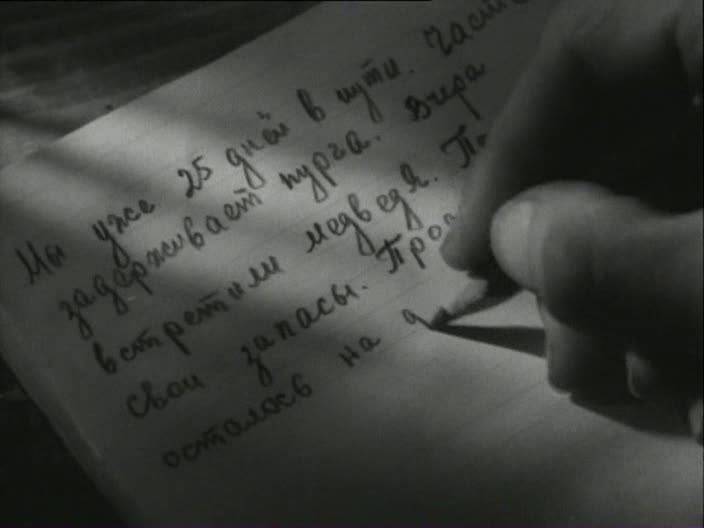 Мы уже 25 дней в пути. Част
задерживает пурга. Вчера
встретили медведя. По
свои запасы. Прод
осталось на